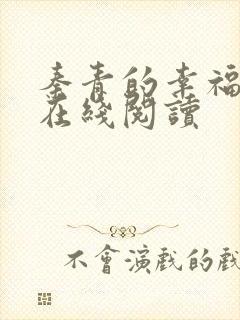 秦青的幸福
在綫閱讀
不會演戲的戲